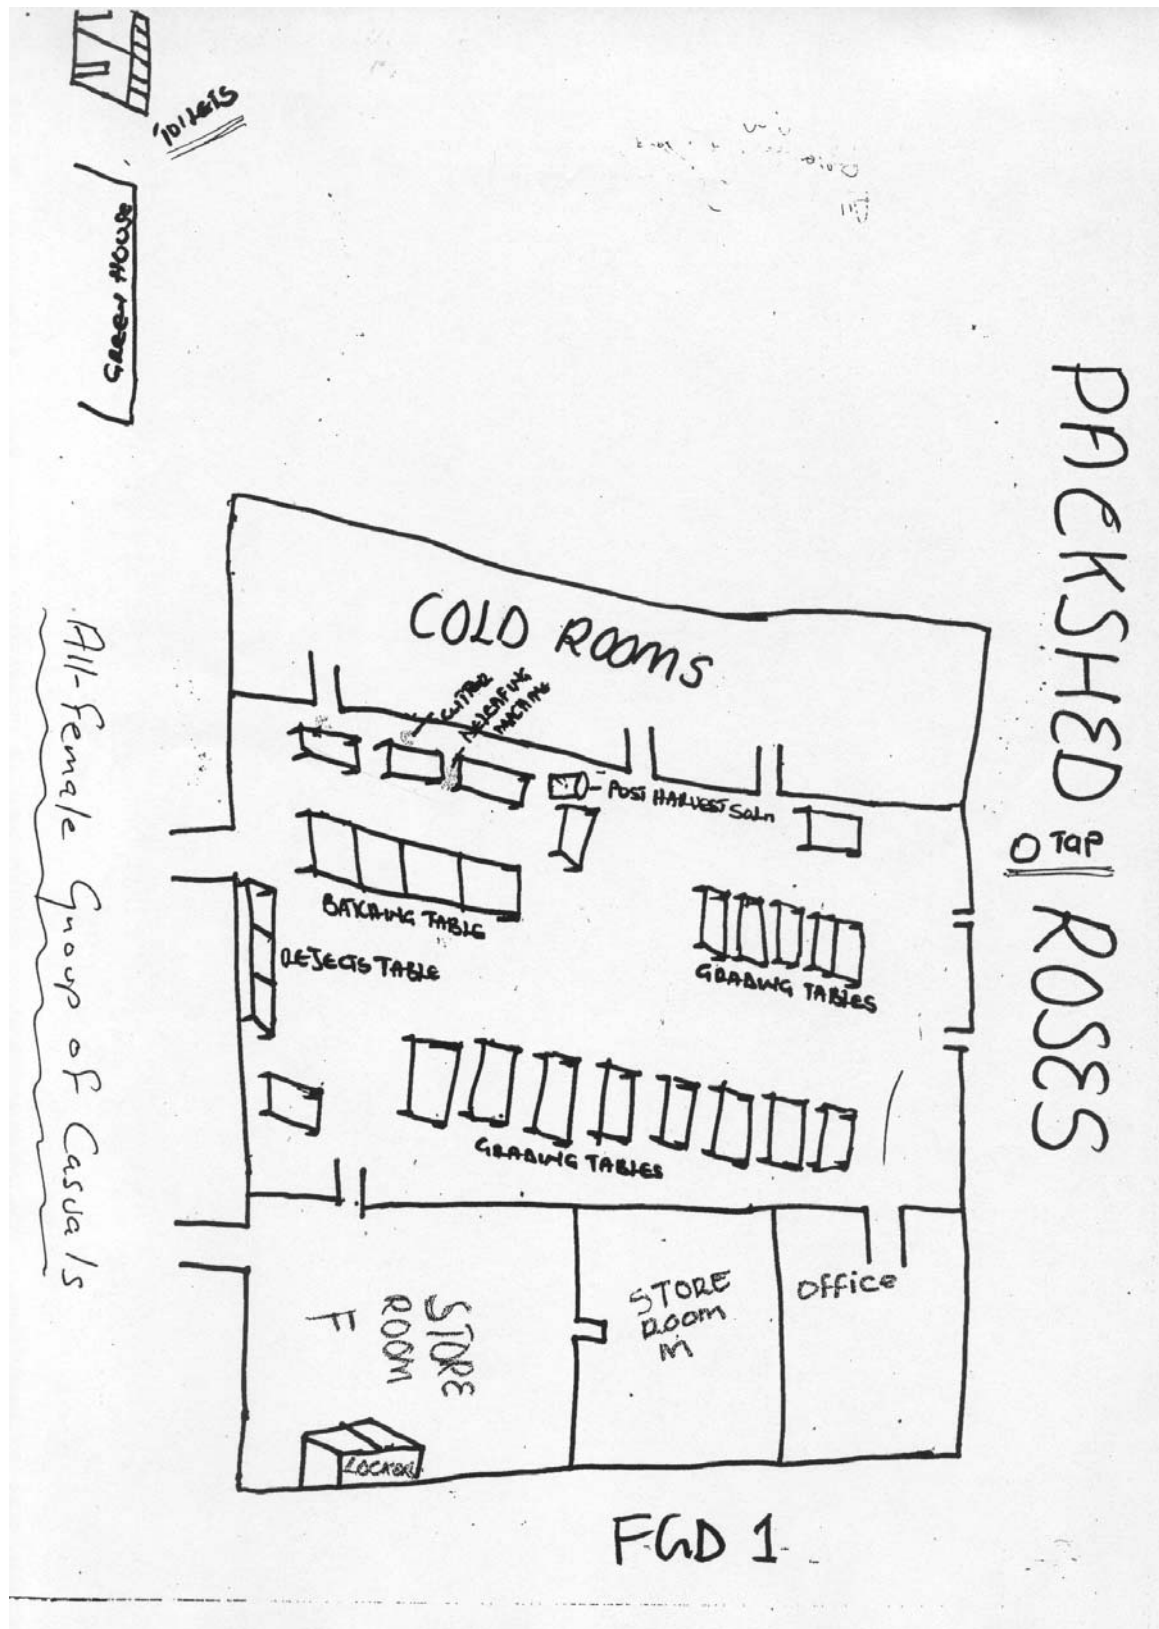 TOILETS
GREEN HOUSE
PACKSHED ROSES
TAP
COLD ROOMS
CUTTER
DELEAFING
MACHINE
POST HARVEST SOLN
BATCHING TABLE
REJECTS TABLE
GRADING TABLES
GRADING TABLES
STORE
ROOM
F
STORE
ROOM
M
OFFICE
LOCKER
All-female Group of Casuals
FGD 1